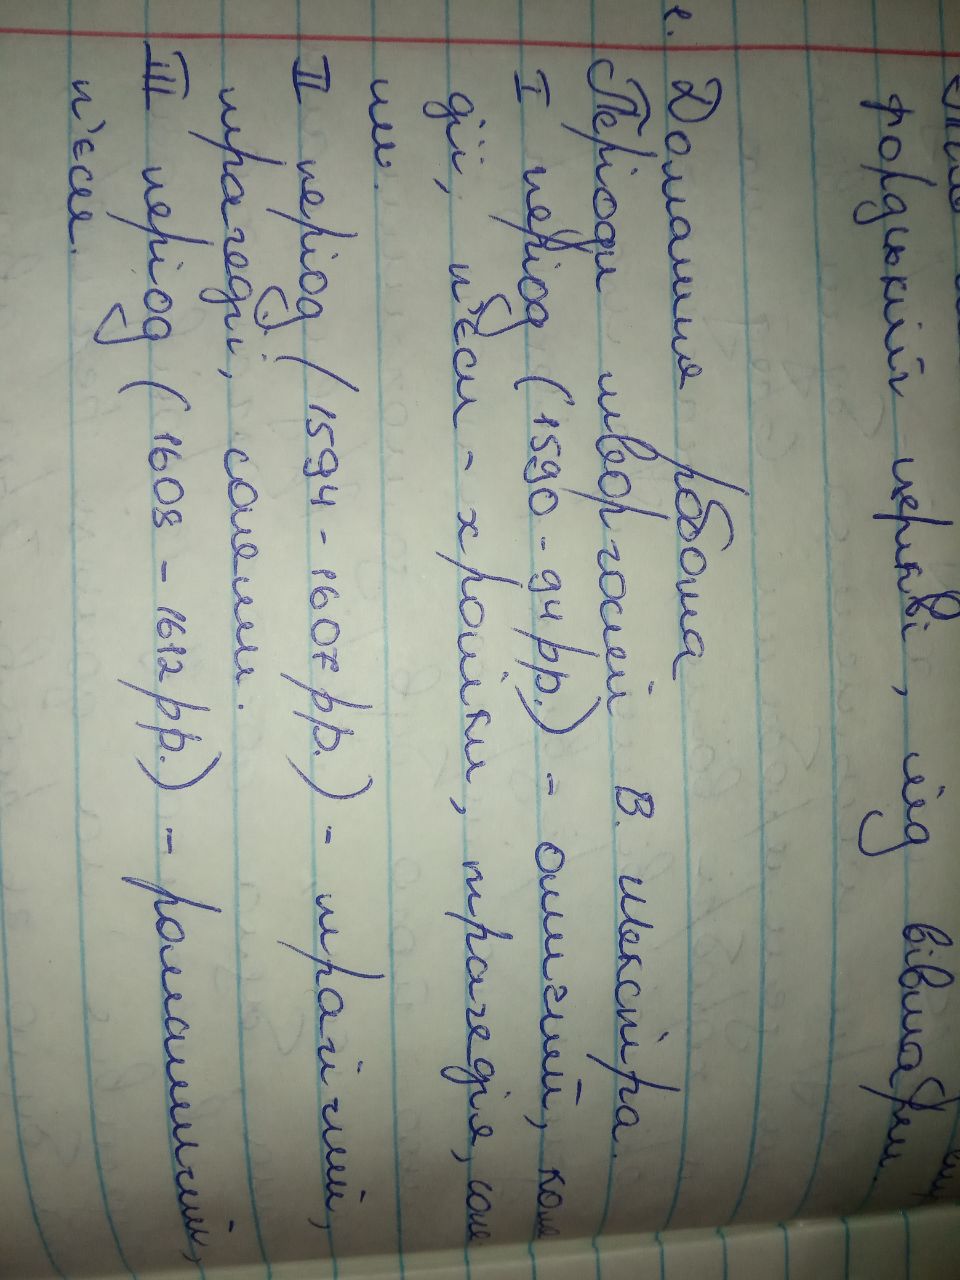 фордській церкві, під вівтарем.
Домашня робота
Періоди творчості В. Шекспіра.
I період (1590-94рр.) - оптиміст., коме
дії, п'єси-хроніки, трагедія, соне
ти.
II період (1594-1607рр.) - трагічний,
трагедії, сонети.
III період (1608-1612рр.) - романтичний,
п'єси.